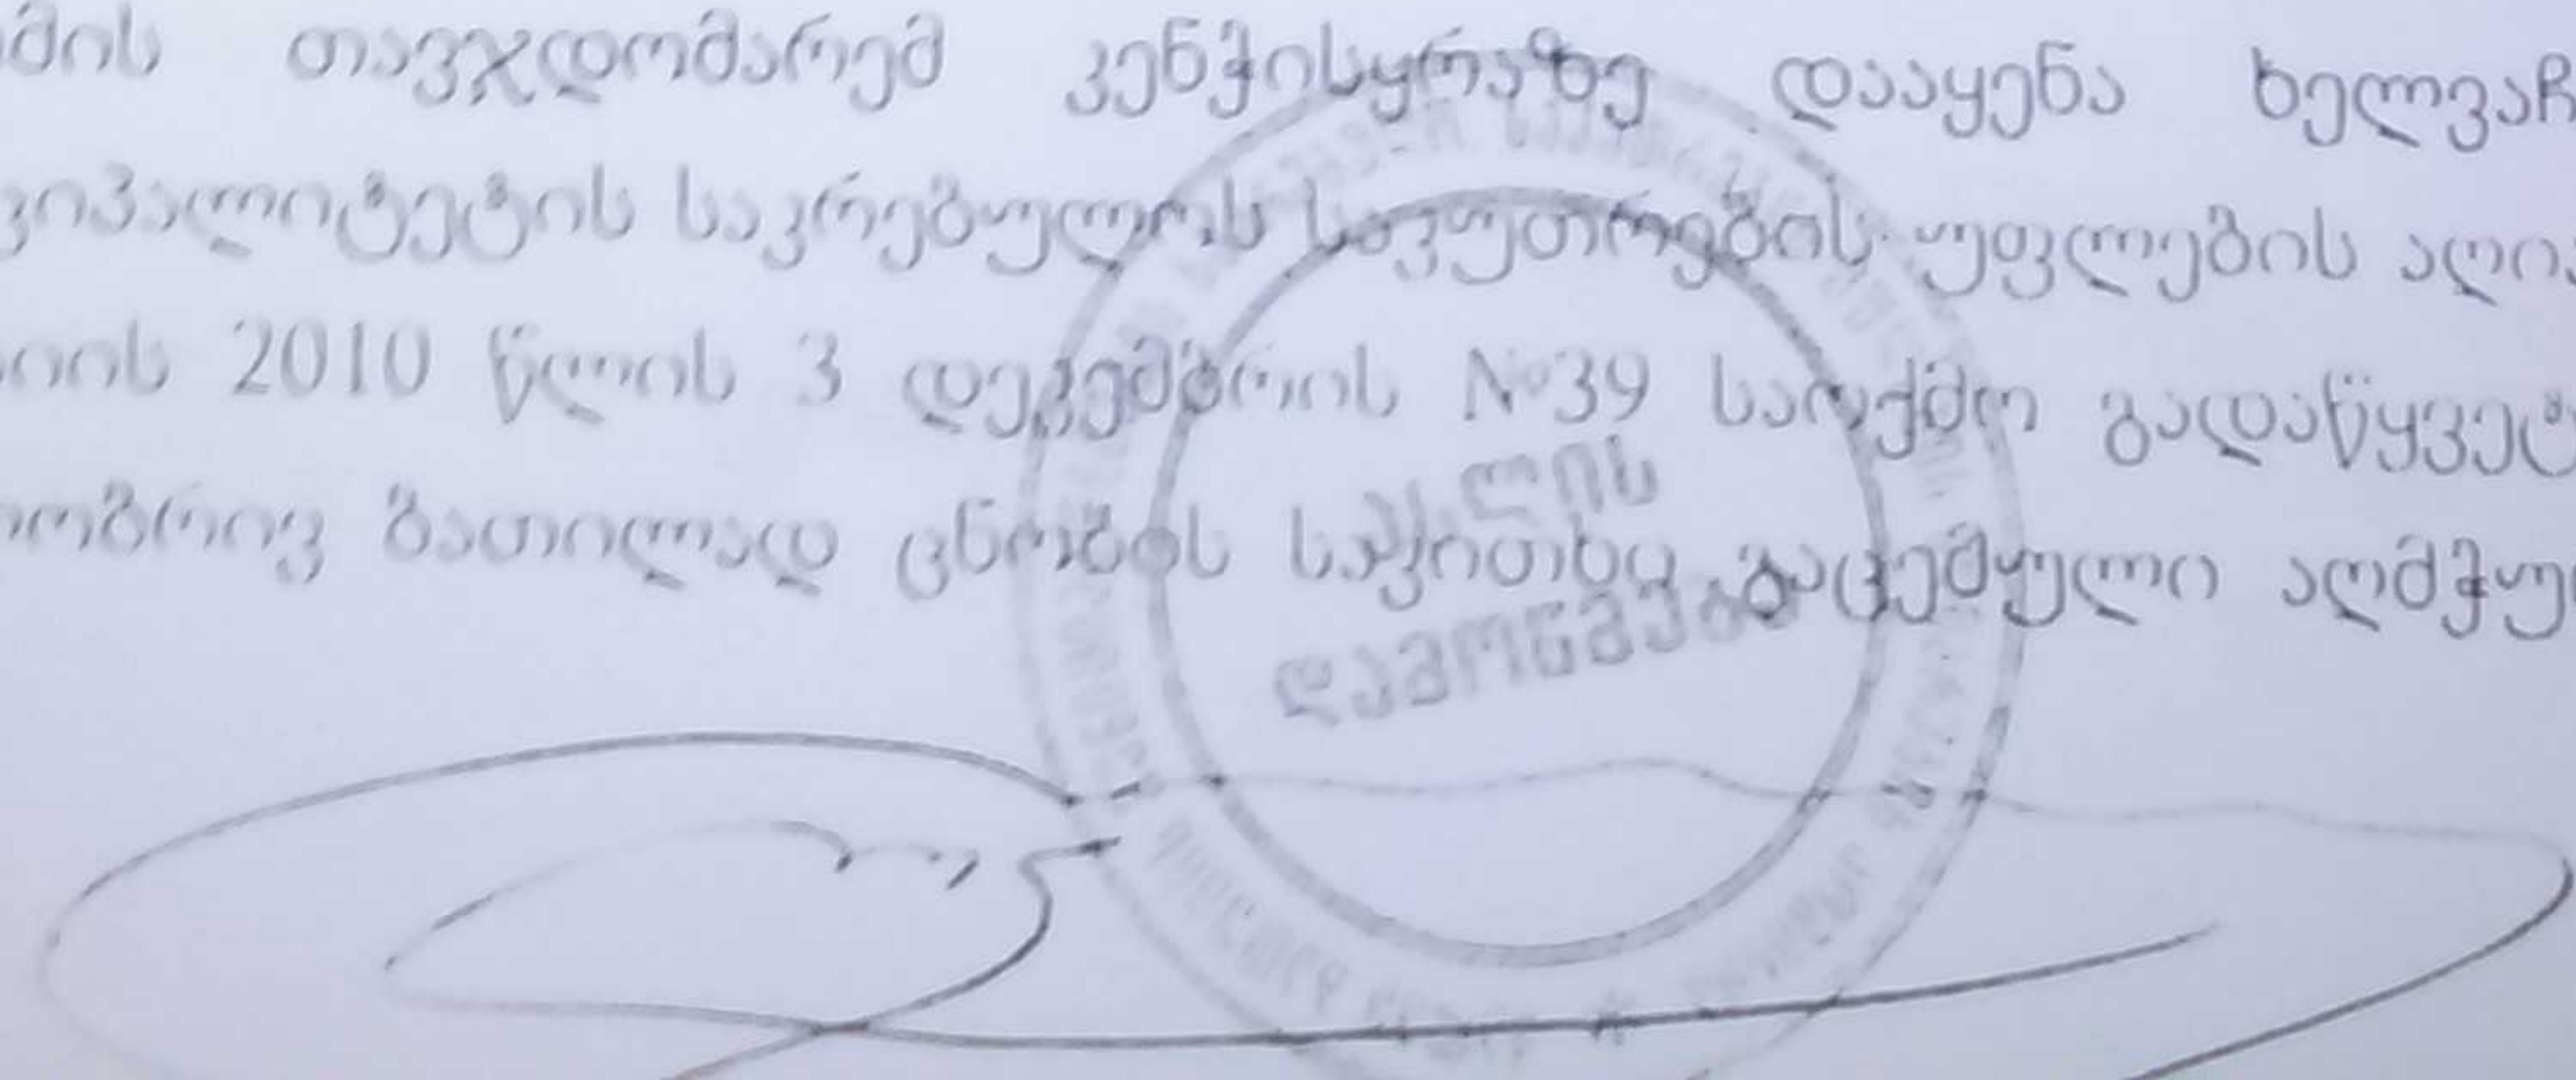 მის თავჯდომარემ კენჭისყრაზე დააყენა ხელვაჩ
ვიპალიტეტის საკრებულოს საკუთრების უფლების აღია
იის 2010 წლის 3 დეკემბრის №39 საოქმო გადაწყვეტ
ობრივ ბათილად ცნობის საკითხი გაცემული აღმჭუ
ასლის
დამოწმება